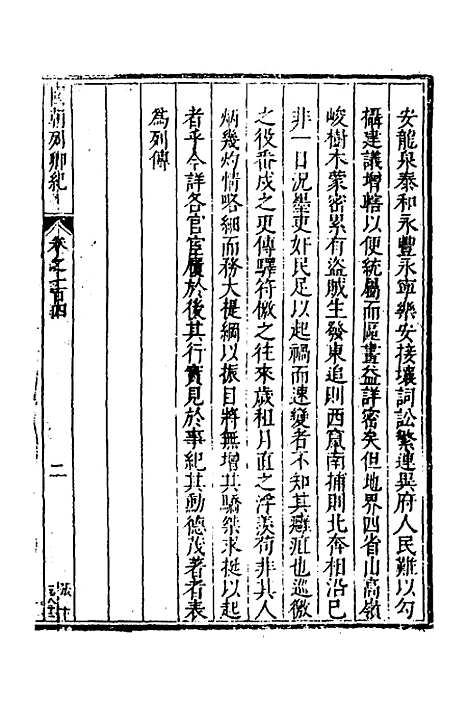 安龍泉泰和永豐永寧樂安接壤詞訟繁連吳府人民難以勾
攝建議增轄以便統屬而區畫益詳密矣但地界四省山高嶺
峻樹木蒙密累有盜賊生發東追則西竄南捕則北奔相沿已
非一日況槩更奸民足以起禍而速變者不知其癬疽也巡徼
之役番戍之更傳驛符儆之往來歲租月直之浮羨苟非其人
炳幾灼情略細而務大提綱以振目將無增其驕桀求挺以起
者乎今詳各官宦履於後其行實見於事紀其勳德茂著者表
爲列傳
國朝列卿紀
卷之一百四
二